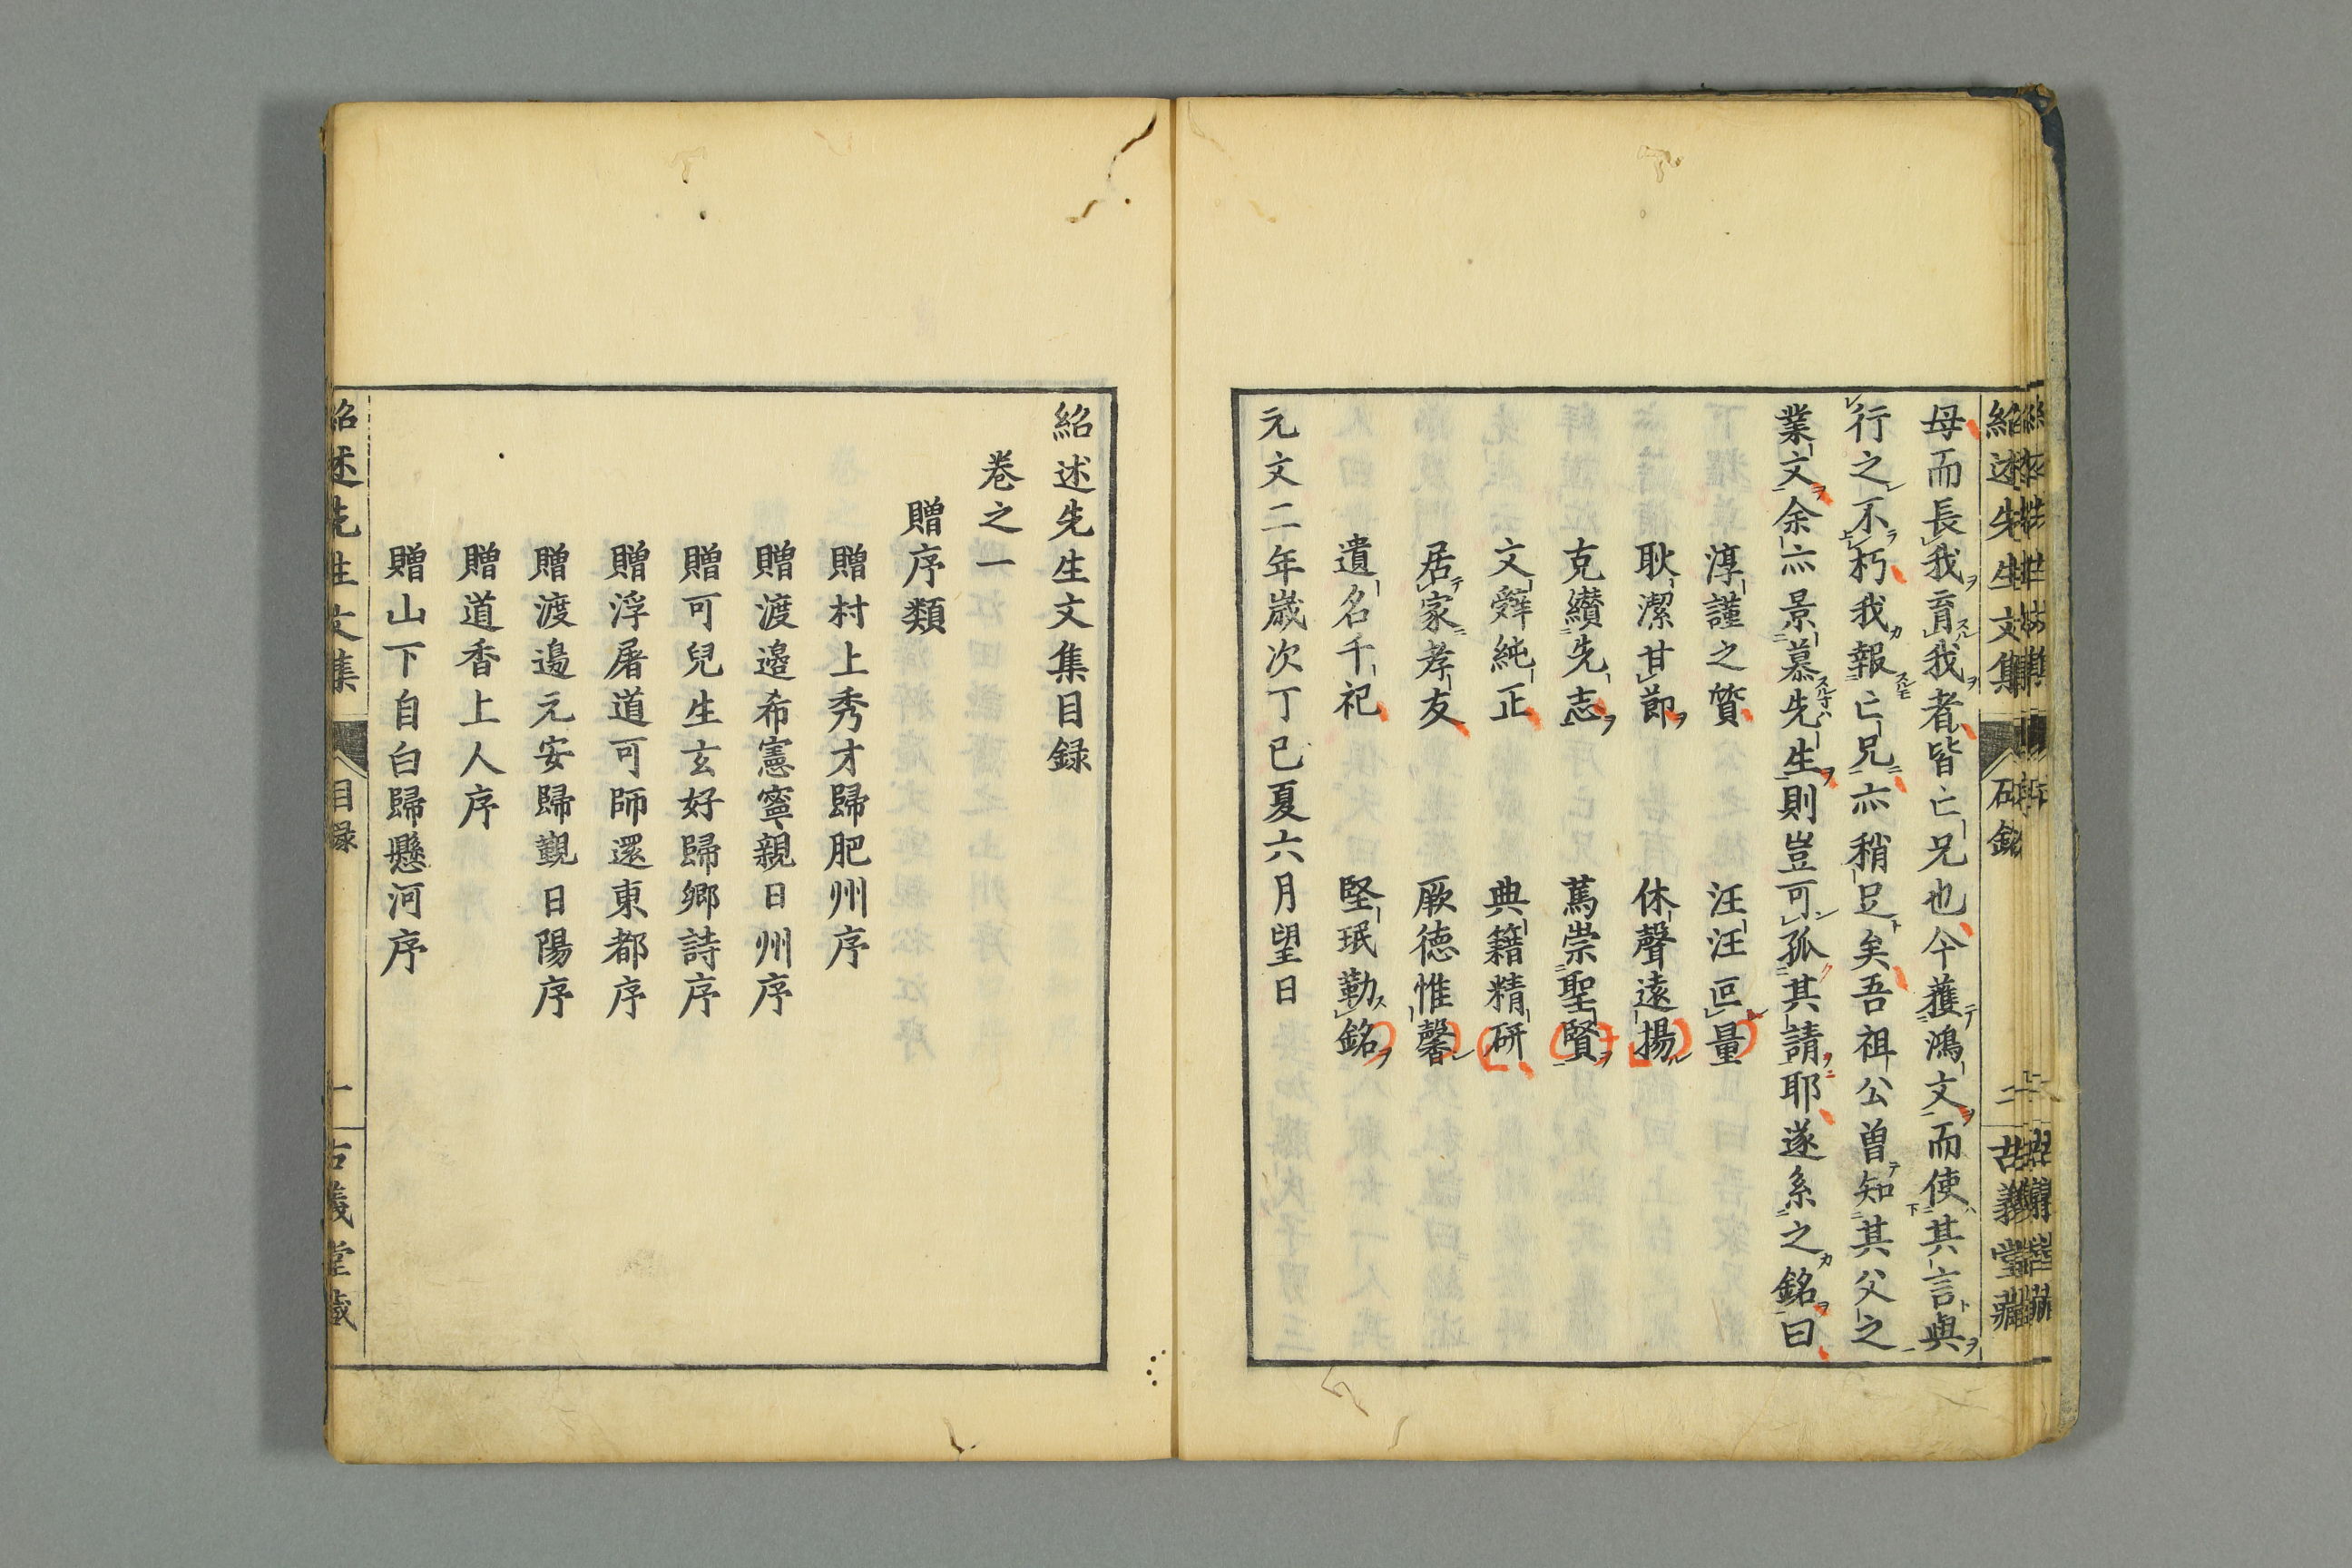 母而長我育我者皆亡兄也今獲鴻文而使其言與
行之不朽我報亡兄亦稍足矣吾祖公曽知其父之
業文余亦景慕先生則豈可孤其請耶遂系之銘曰
淳謹之質 汪汪叵量
耿潔甘節 休聲遠揚
克纉先志 篤崇聖賢
文辭純正 典籍精研
居家孝友 厥徳惟馨
遺名千祀 堅珉勒銘
元文二年歳次丁巳夏六月望日
紹述先生文集目録
巻之一
贈序類
贈村上秀才歸肥州序
贈渡邉希憲寧親日州序
贈可兒生玄好歸郷詩序
贈浮屠道可師還東都序
贈渡邉元安歸覲日陽序
贈道香上人序
贈山下自白歸懸河序
紹述先生文集 目録 一 古義堂藏